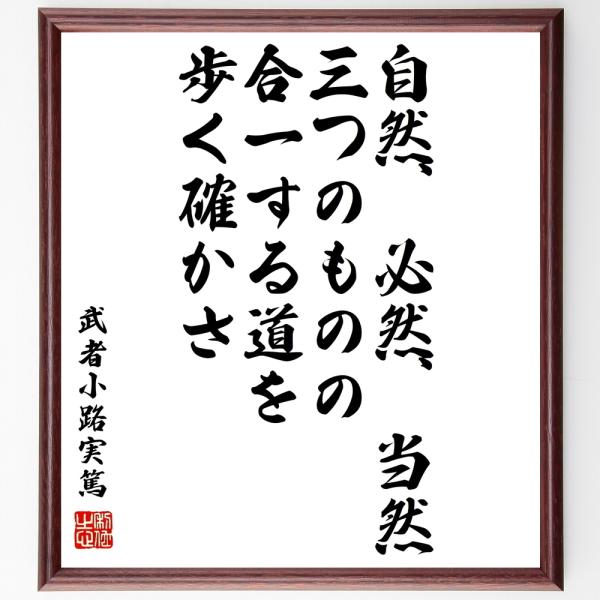 自然 必然 当然
三つのものの
合一する道を
歩く確かさ
武者小路実篤